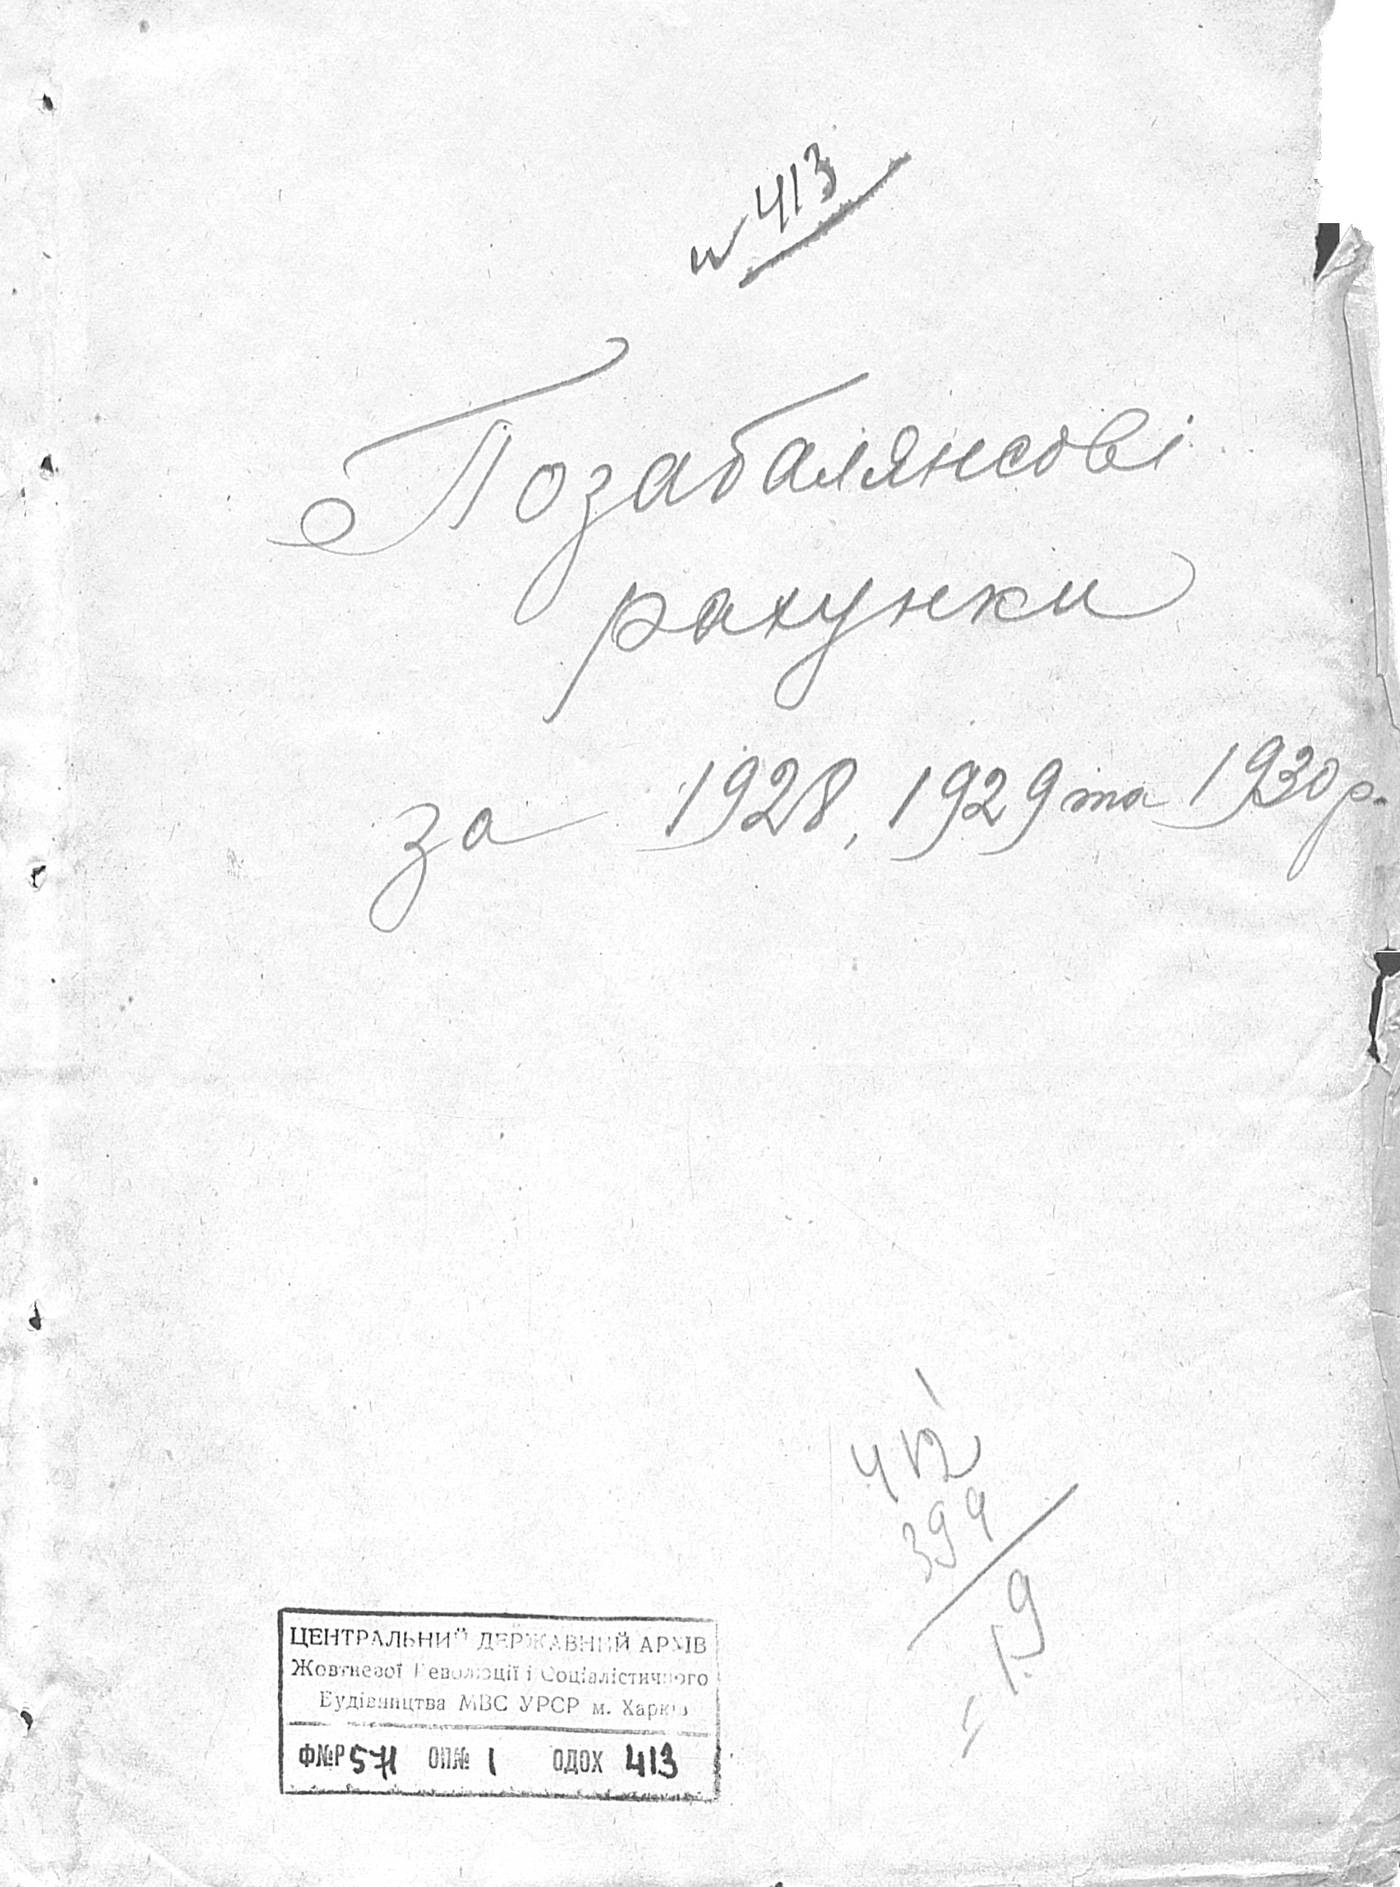 № 413
Позабалянсові
рахунки
за 1928, 1929 та 1930 р.
412
399
ЦЕНТРАЛЬНИЙ ДЕРЖАВНИЙ АРХІВ
Жовтневої Революції і Соціалістичного
Будівництва МВС УРСР м. Харків
Ф№Р 571 ОП№ 1 ОДОХ 413